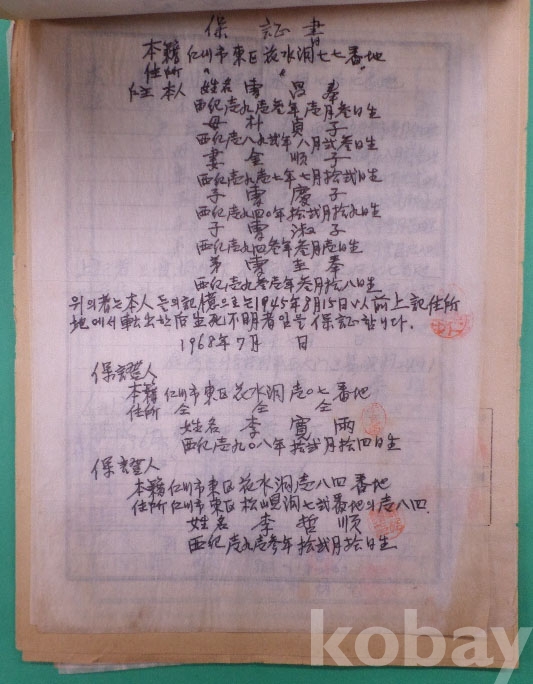 保証書
本籍 仁川市東区花水洞七七番地
住所 〃 〃 〃
本人 姓名 雪昌奉
西紀壱九壱参年壱月参日生
母 朴貞子
西紀壱八九弐年八月弐参日生
妻 金順子
西紀壱九壱七年七月拾弐日生
子 雪慶子
西紀壱九四〇年拾弐月拾九日生
子 雪淑子
西紀壱九四参年参月壱日生
弟 雪奉
西紀壱九参壱年参月拾八日生
위의 者는 本人 등의 記憶으로는 1945年8月15日以前 上記住所
地에서 転出한 后 生死不明者임을 保証합니다.
1968年7月 日
保證人
本籍 仁川市東区花水洞壱〇七番地
住所 仝 仝 仝
姓名 李寬雨
西紀壱九〇八年拾弐月拾四日生
保證人
本籍 仁川市東区花水洞壱八四番地
住所 仁川市東区松峴洞七弐番地의壱八四
姓名 李哲順
西紀壱九壱参年拾弐月拾日生
kobay